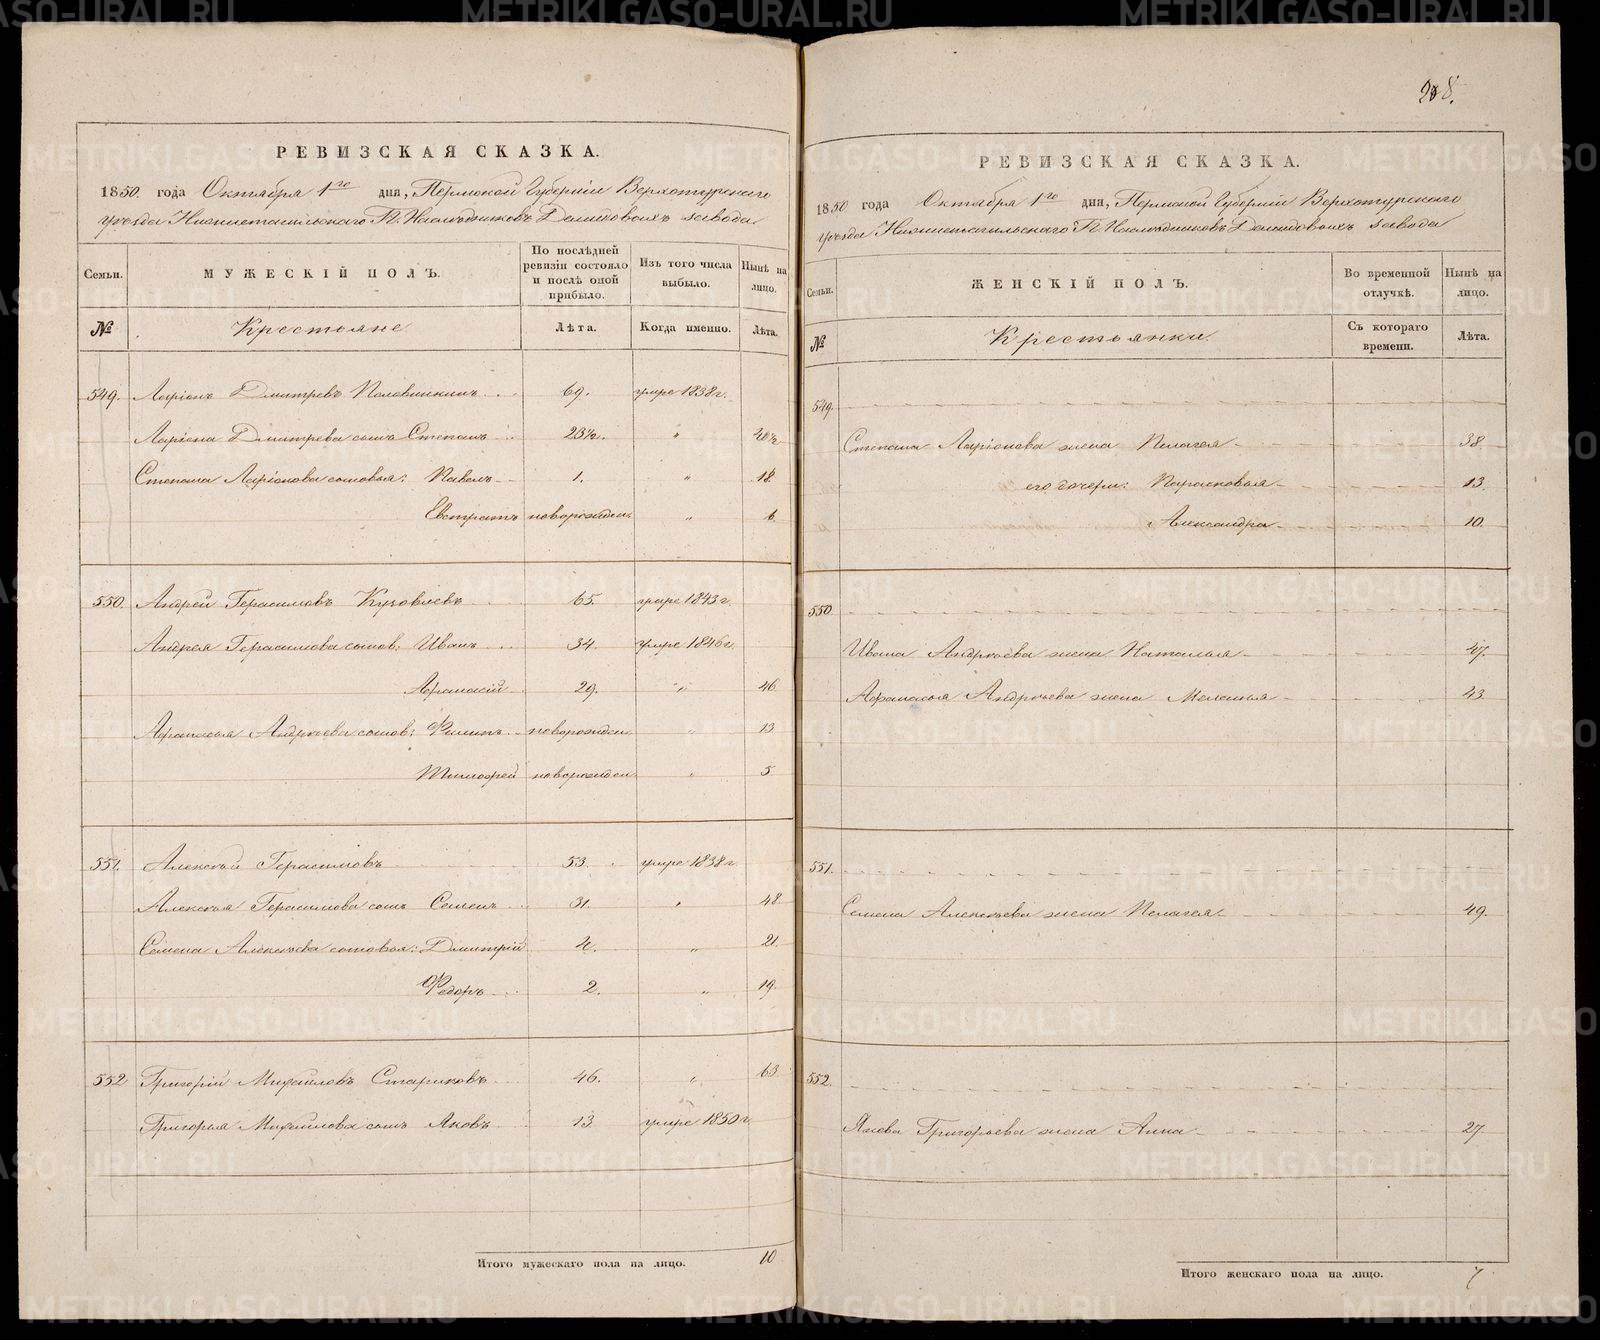 РЕВИЗСКАЯ СКАЗКА.
1850. года Октября 1го дня, Пермской Губернiи Верхотурскаго
уѣзда Нижнетагильскаго Гг. Наслѣдниковъ Демидовыхъ завода
Семьи. МУЖЕСКIЙ ПОЛЪ. По послѣдней ревизiи состояло и послѣ оной прибыло. Изъ того числа выбыло. Нынѣ на лицо.
№ Крестьяне Лѣта. Когда именно. Лѣта.
549. Ларiонъ Дмитревъ 69. умре 1838 г.
Ларiона Дмитрева сынъ Степанъ 23½. "
Степана Ларiонова сыновья: Павелъ 1. " 18
Евстратъ новорожден. " 6
550. Андрей Герасимовъ 65. умре 1843 г.
Андрея Герасимова сынов: Иванъ 34. умре 1846 г.
Афанасiй 29. " 46
Афанасья Андреева сынов: Филипъ новорожден " 13
Тимофей новорожден " 5
551. Алексѣй Герасимовъ 53. умре 1838 г
Алексѣя Герасимова сынъ Семенъ 31. " 48
Семена Алексѣева сыновья: Дмитрiй 4. " 21
Федоръ 2. " 19.
552 Григорiй Михайловъ Стариковъ 46. " 63
Григорья Михайлова сынъ Яковъ 13 умре 1850 г
Итого мужескаго пола на лицо. 10
208.
РЕВИЗСКАЯ СКАЗКА.
1850 года Октября 1го дня, Пермской Губернiи Верхотурскаго
уѣзда Нижнетагильскаго Гг. Наслѣдниковъ Демидовыхъ завода
Семьи. ЖЕНСКIЙ ПОЛЪ. Во временной отлучкѣ. Нынѣ на лицо.
№ Крестьянки. Съ котораго времени. Лѣта.
549.
Степана Ларiонова жена Пелагея 38
его дочери: Парасковья 13.
Александра 10.
550.
Ивана Андреева жена Наталья 47.
Афанасья Андреева жена Меланья 43.
551.
Семена Алексѣева жена Пелагея 49.
552.
Якова Григорьева жена Анна 27
Итого женскаго пола на лицо. 7
METRIKI.GASO-URAL.RU